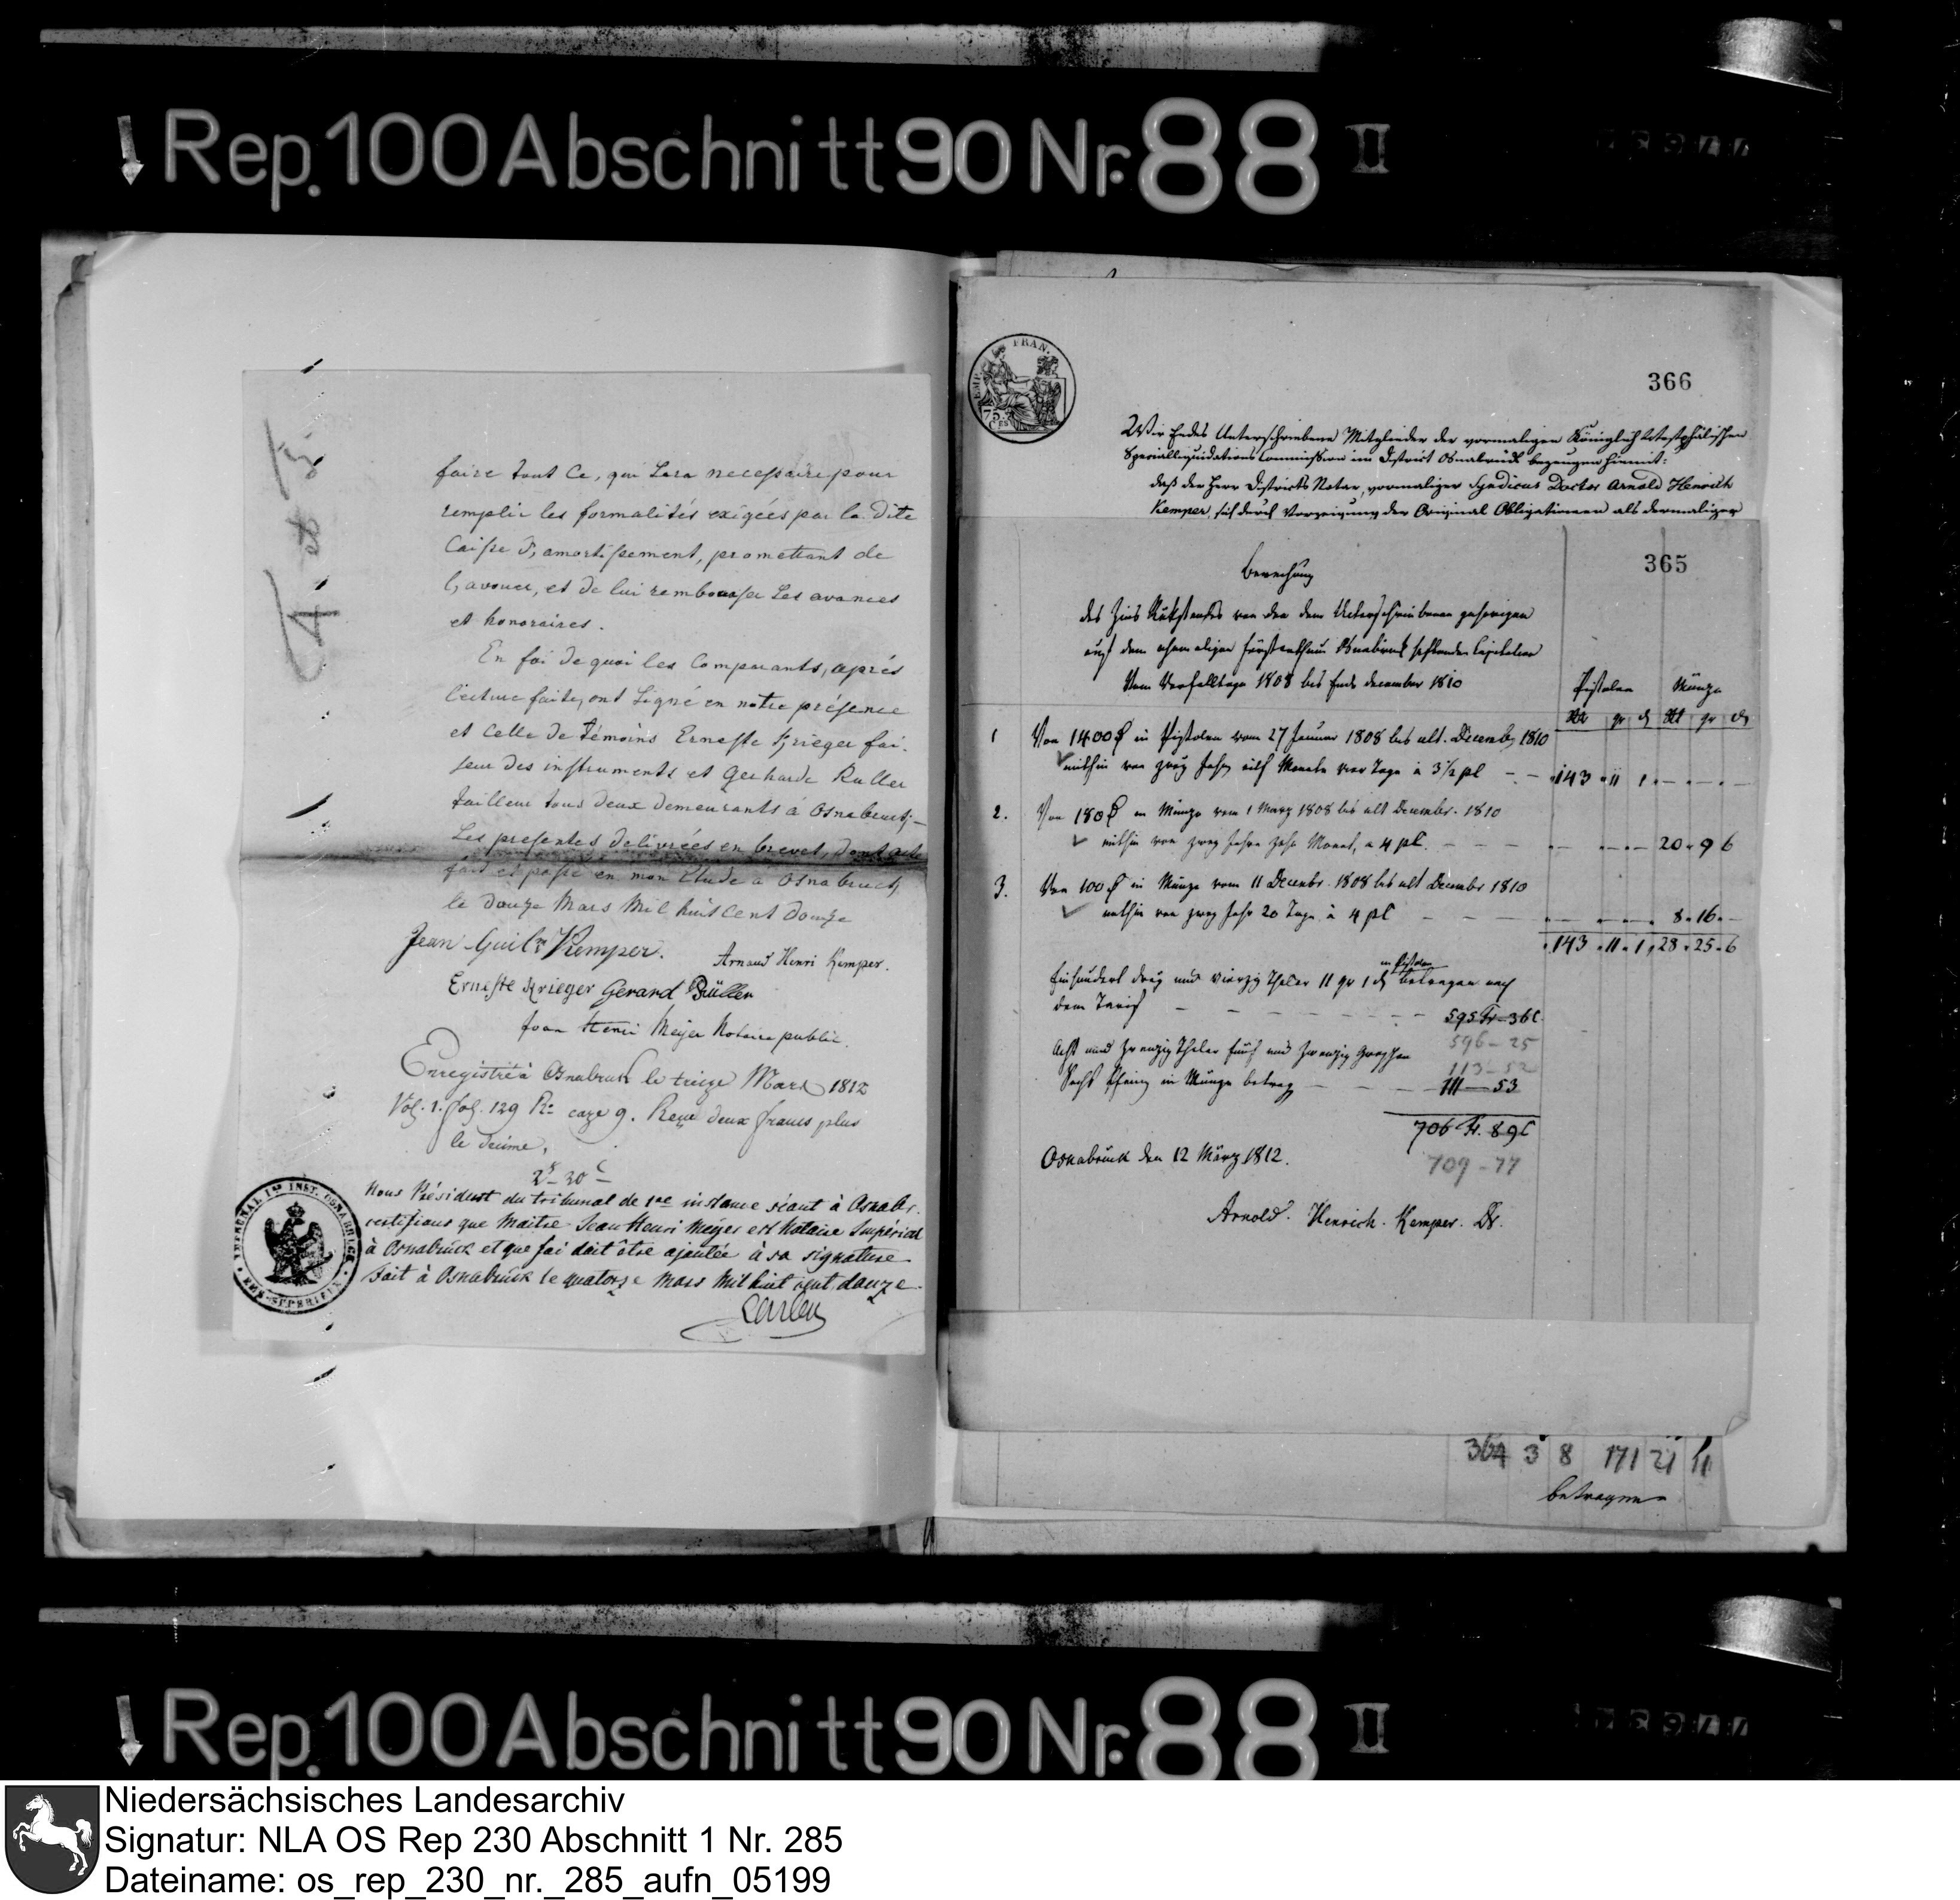 Rep. 100 Abschnitt 90 Nr. 88 II
faire tout ce, qui sera necessaire pour
remplir les formalités exigées par la dite
Caisse d'amortissement, promettant de
l'avouer, et de lui rembourser les avances
et honoraires.
En foi de quoi les Comparants, aprés
lecture faite, ont signé en notre présence
et celle de témoins Erneste Krieger fai-
seur des instruments et Gerhard Ruller
tailleur tous deux demeurants à Osnabruck;
Les presentes delivrées en brevet, dont acte
fait et passé en mon Etude à Osnabruck,
le douze Mars mil huit cent douze
Jean Guilm Kemper. Arnaud Henri Kemper.
Erneste Krieger Gerard Rüller
Jean Henri Meyer Notaire public.
Enregistré à Osnabruck le treize Mars 1812
Vol. 1. fol. 129 Ro. caze 9. Reçu deux francs plus
le decime,
2f 20c
Nous Président du tribunal de 1re instance séant à Osnabr.
certifions que Maitre Jean Henri Meyer est Notaire Impérial
à Osnabrück et que foi doit être ajoutée à sa signature
Fait à Osnabrück le quatorze Mars mil huit cent douze
EMP. FRAN.
75 Ces
366
Wir Endes Unterschriebene Mitglieder der vormaligen Königlich Westphälischen
Specialliquidations Commission im District Osnabrück bezeugen hiemit:
daß der Herr Districts Notar, vormaliger Syndicus Doctor Arnold Henrich
Kemper, sich durch Vorzeigung der Original Obligationen als dermaliger
365
Berechung
des Zins Rükstandes von den dem Unterschriebenen gehörigen
auf dem ehemaligen Fürstenthum Osnabrück haftenden Capitalien
Vom Verfalltage 1808 bis Ende december 1810
Pistolen Münze
gr d gr d
1 Von 1400 in Pistolen vom 27 Januar 1808 bis ult. Decemb. 1810
mithin von zwey Jahr eilf Monate vier Tage à 3 1/2 pC 143 11 1
2. Von 180 in Münze vom 1 März 1808 bis ult December. 1810
mithin von zwey Jahre zehn Monat, à 4 pC. 20 9 6
3. Von 100 in Münze vom 11 Decembr. 1808 bis ult Decembr 1810
mithin von zwey Jahr 20 Tage à 4 pC 8 16
143 11 1 28 25 6
in Pistolen
Einhundert drey und vierzig Thaler 11 gr 1 d betragen nach
dem Tarif 595 Fr 36 C.
596 - 25
Acht und zwanzig Thaler fünf und zwanzig Groschen
113 - 52
Sechs Pfennig in Münze betrag 111 - 53
706 Fr. 89 C
709 - 77
Osnabrück den 12 März 1812.
Arnold. Henrich. Kemper. Dr.
364 3 8 171 21 11
betragen
Rep. 100 Abschnitt 90 Nr. 88 II
Niedersächsisches Landesarchiv
Signatur: NLA OS Rep 230 Abschnitt 1 Nr. 285
Dateiname: os_rep_230_nr._285_aufn_05199